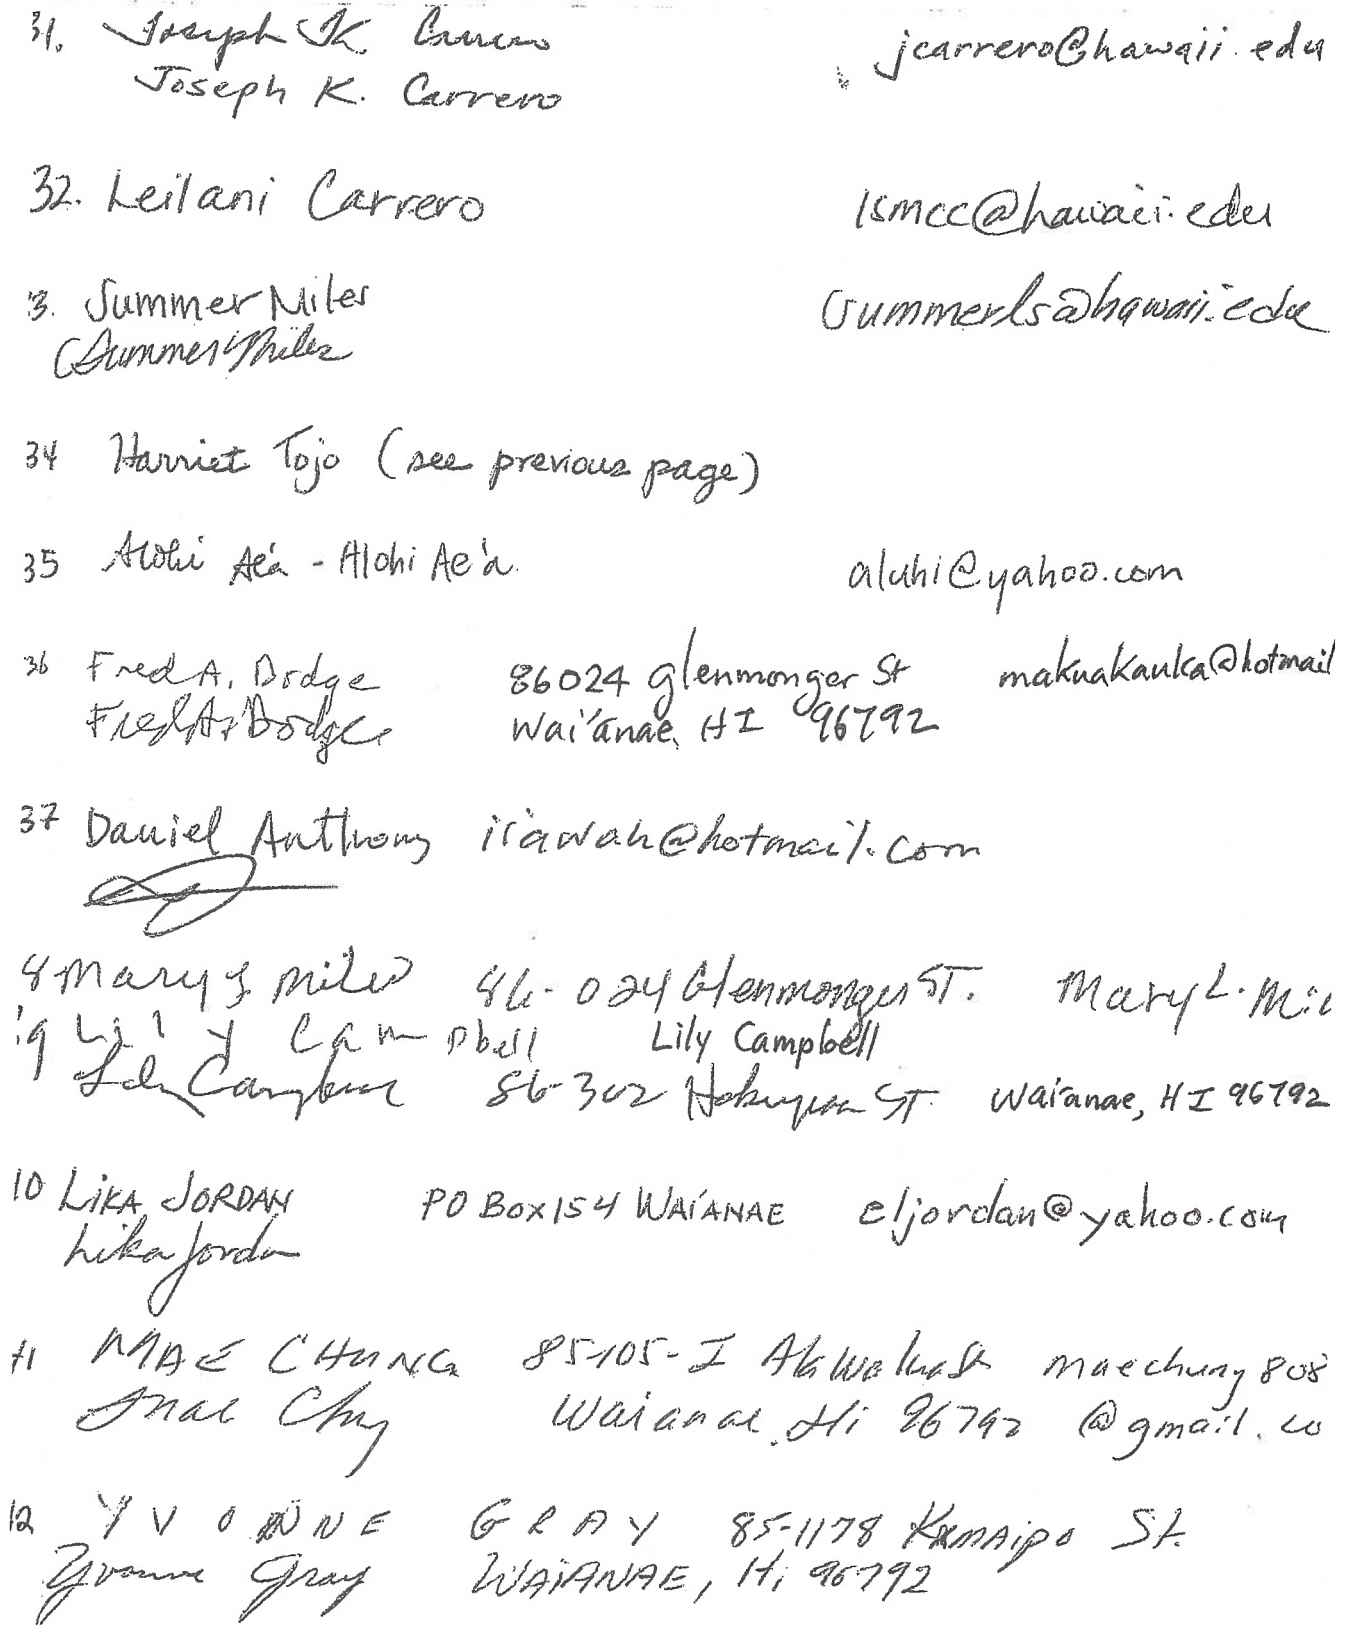 31. Joseph K. Carrero jcarrero@hawaii.edu
Joseph K. Carrero
32. Leilani Carrero lsmcc@hawaii.edu
3. Summer Miles summerls@hawaii.edu
Summer Miles
34 Harriet Tojo (see previous page)
35 Alohi Ae'a - Alohi Ae'a aluhi@yahoo.com
36 Fred A. Dodge 86024 Glenmonger St makuakauka@hotmail
Fred A. Dodge Wai'anae, HI 96792
37 Daniel Anthony iiawah@hotmail.com
8 Mary L Miles 86-024 Glenmonger ST. MaryL.Mil
9 Lily Campbell Lily Campbell
Lily Campbell 86-302 ST. Wai'anae, HI 96792
10 LIKA JORDAN PO BOX 154 WAI'ANAE eljordan@yahoo.com
Lika Jordan
41 MAE CHUNG 85-105-I maechung808
Mae Chung Waianae, Hi 96792 @gmail.co
12 YVONNE GRAY 85-1178 KAMAIPO St.
Yvonne Gray WAIANAE, Hi 96792